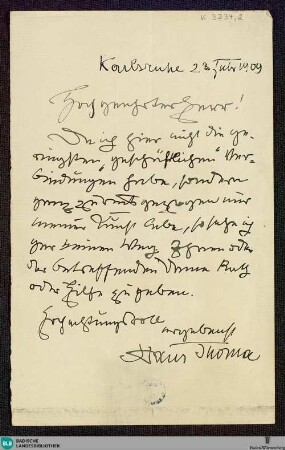 K 3234,2
Karlsruhe 23 Febr 1909
Hochgeehrter Herr!
Da ich hier nicht die ge-
ringsten "geschäftlichen" Ver-
bindungen habe, sondern
ganz zurückgezogen nur
meiner Kunst lebe, so sehe ich
gar keinen Weg Ihnen oder
der betreffenden Dame Rath
oder Hilfe zu geben.
Hochachtungsvoll
ergebenst
Hans Thoma
BLB BADISCHE
LANDESBIBLIOTHEK
Baden-Württemberg